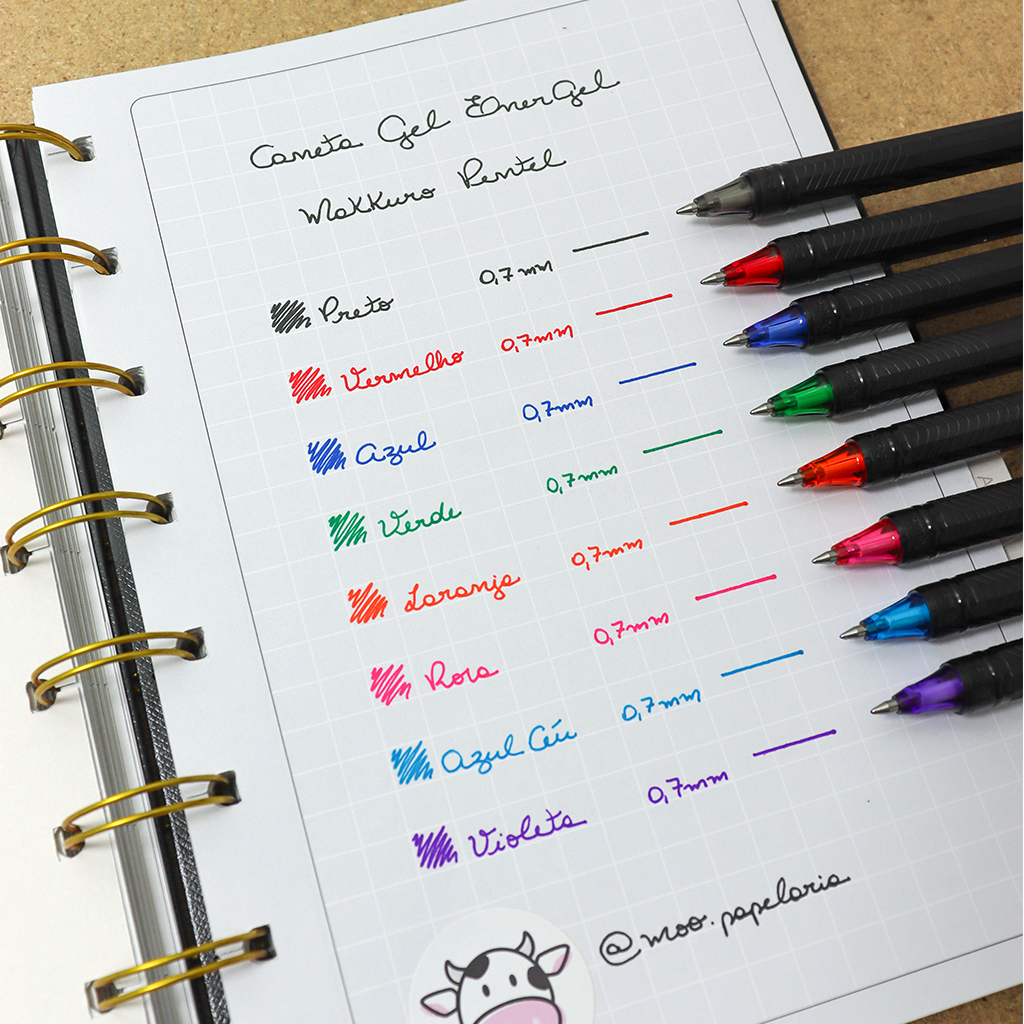 Caneta Gel EnerGel
Makkuro Pentel
Preto 0,7mm
Vermelho 0,7mm
Azul 0,7mm
Verde 0,7mm
Laranja 0,7mm
Rosa 0,7mm
Azul Céu 0,7mm
Violeta 0,7mm
@moo.papelaria